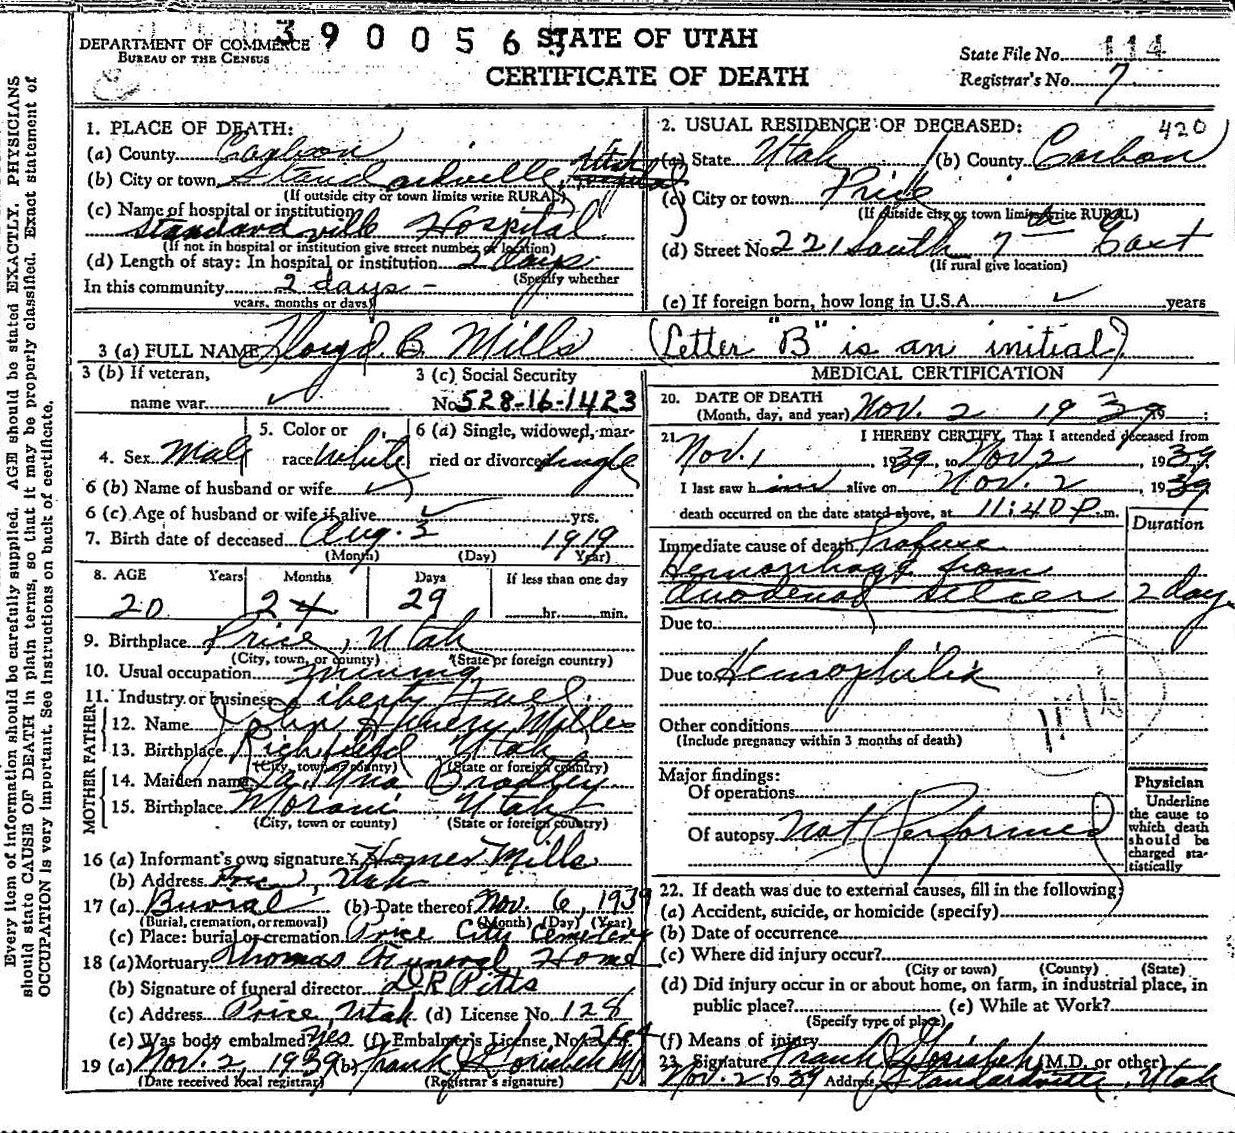 390056
DEPARTMENT OF COMMERCE
BUREAU OF THE CENSUS
STATE OF UTAH
CERTIFICATE OF DEATH
State File No. 114
Registrar's No. 7
Every item of information should be carefully supplied. AGE should be stated EXACTLY. PHYSICIANS
should state CAUSE OF DEATH in plain terms, so that it may be properly classified. Exact statement of
OCCUPATION is very important. See instructions on back of certificate.
1. PLACE OF DEATH:
(a) County Carbon
(b) City or town Standardville, Utah
(If outside city or town limits write RURAL)
(c) Name of hospital or institution
Standardville Hospital
(If not in hospital or institution give street number or location)
(d) Length of stay: In hospital or institution 2 days
(Specify whether
In this community 2 days -
years, months or days)
2. USUAL RESIDENCE OF DECEASED: 420
(a) State Utah (b) County Carbon
(c) City or town Price
(If outside city or town limits write RURAL)
(d) Street No. 221 South 7th East
(If rural give location)
(e) If foreign born, how long in U.S.A. ✓ years
3 (a) FULL NAME Floyd B. Mills (Letter "B" is an initial)
3 (b) If veteran,
name war ✓
3 (c) Social Security
No. 528-16-1423
4. Sex Male
5. Color or
race White
6 (a) Single, widowed, mar-
ried or divorced Single
6 (b) Name of husband or wife ✓
6 (c) Age of husband or wife if alive ✓ yrs.
7. Birth date of deceased Aug. 3 1919
(Month) (Day) Year)
8. AGE Years Months Days If less than one day
20 2 4 29 hr. min.
9. Birthplace Price, Utah
(City, town, or county) (State or foreign country)
10. Usual occupation mining
11. Industry or business Liberty Fuel
FATHER
12. Name John Henery Mills
13. Birthplace Richfield Utah
(City, town or county) (State or foreign country)
MOTHER
14. Maiden name Bradley
15. Birthplace Moroni Utah
(City, town or county) (State or foreign country)
16 (a) Informant's own signature x Homer Mills
(b) Address Price, Utah
17 (a) Bureal (b) Date thereof Nov. 6, 1939
(Burial, cremation, or removal) (Month) (Day) (Year)
(c) Place: burial or cremation Price City Cemetery
18 (a) Mortuary Thomas Funeral Home
(b) Signature of funeral director D.R. Pitts
(c) Address Price, Utah (d) License No. 128
(e) Was body embalmed Yes (f) Embalmer's License No.
19 (a) Nov. 2, 1939 (b) Frank
(Date received local registrar) (Registrar's signature)
MEDICAL CERTIFICATION
20. DATE OF DEATH
(Month, day, and year) Nov. 2 1939
21. I HEREBY CERTIFY, That I attended deceased from
Nov. 1, 1939, to Nov 2, 1939
I last saw him alive on Nov. 2, 1939
death occurred on the date stated above, at 11:40 P. m.
Duration
Immediate cause of death Profuse
Hemorrhage from
duodenal ulcer 2 days
Due to
Due to Hemophilia
Other conditions
(Include pregnancy within 3 months of death)
Major findings:
Of operations
Of autopsy Not Performed
Physician
Underline
the cause to
which death
should be
charged sta-
tistically
22. If death was due to external causes, fill in the following)
(a) Accident, suicide, or homicide (specify)
(b) Date of occurrence
(c) Where did injury occur?
(City or town) (County) (State)
(d) Did injury occur in or about home, on farm, in industrial place, in
public place? (e) While at Work?
(Specify type of place)
(f) Means of injury
23. Signature Frank (M.D. or other)
Nov. 2 1939 Address Standardville, Utah